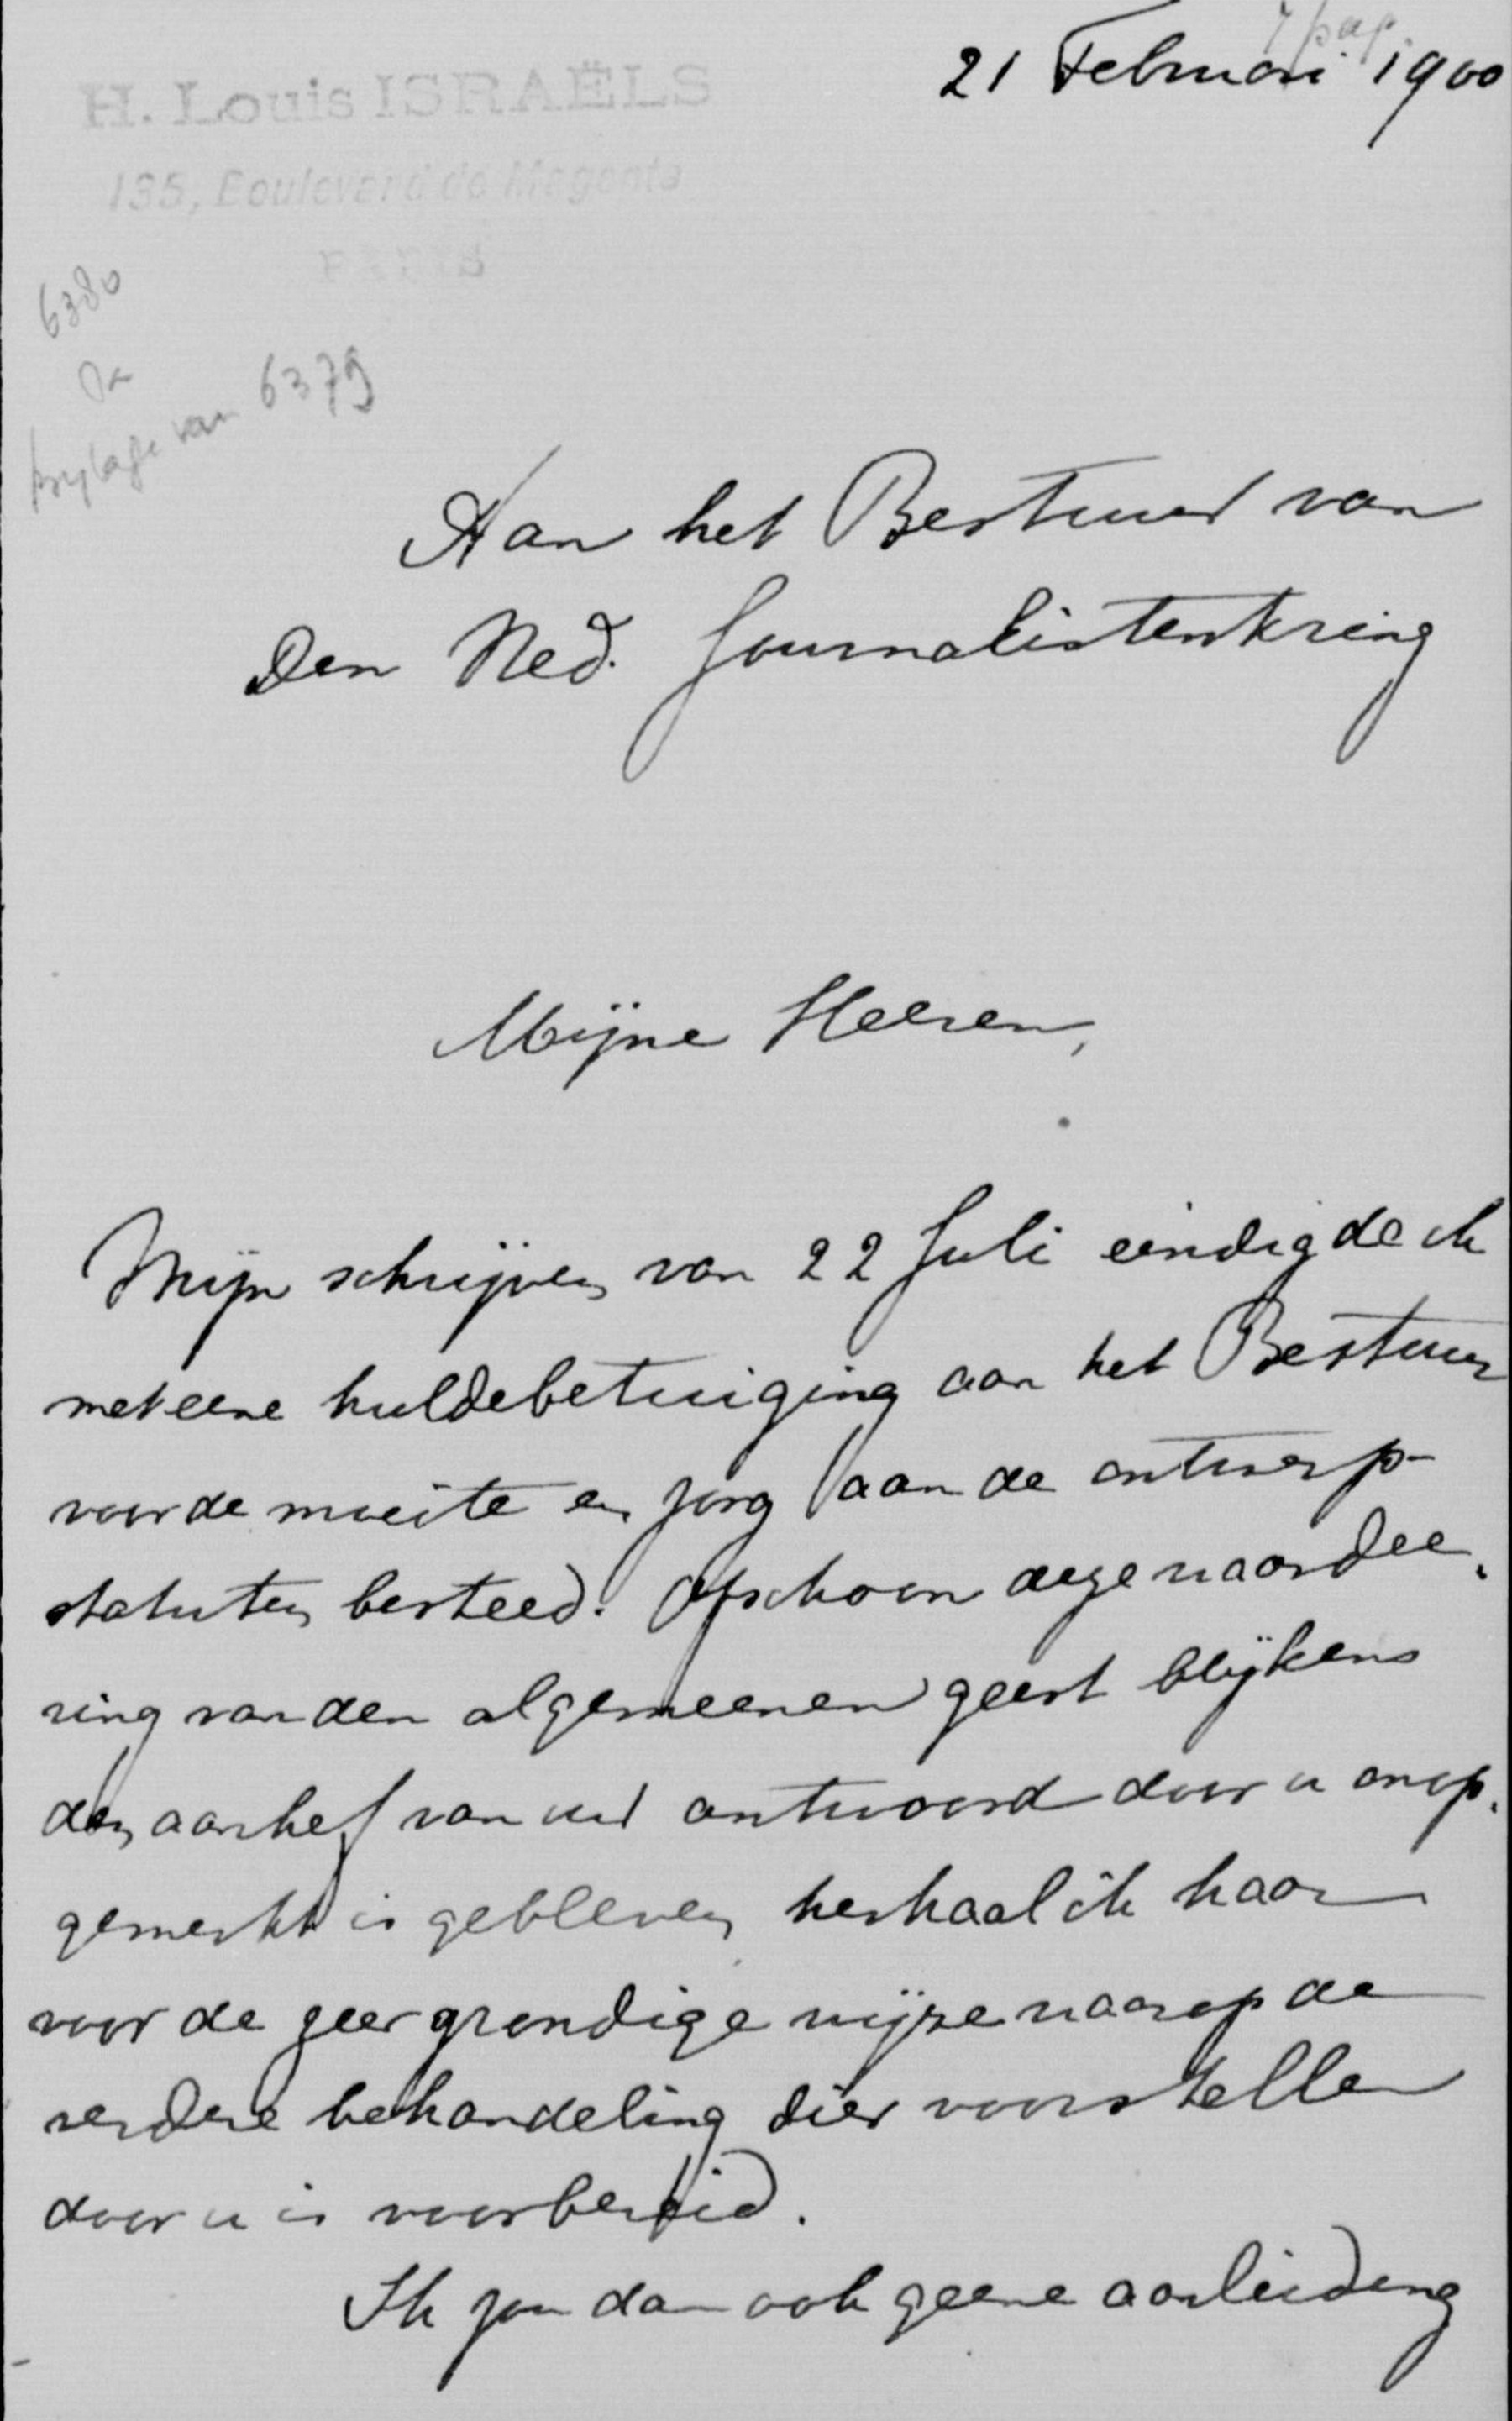 7 pag.
21 Februari 1900
H. Louis ISRAËLS
135, Boulevard de Magenta
PARIS
6380
bylage van 6379
Aan het Bestuur van
Den Ned. Journalistenkring
Mijne Heeren,
Mijn schrijven van 22 Juli eindigde ik
met eene huldebetuiging aan het Bestuur
voor de moeite en zorg aan de ontwerp-
statuten besteed. Ofschoon deze waardee-
ring van den algemeenen geest blijkens
den aanhef van uw antwoord door u onop-
gemerkt is gebleven herhaal ik haar
voor de zeer grondige wijze waarop de
verdere behandeling dier voorstellen
door u is voorbereid.
Ik zou dan ook geene aanleiding